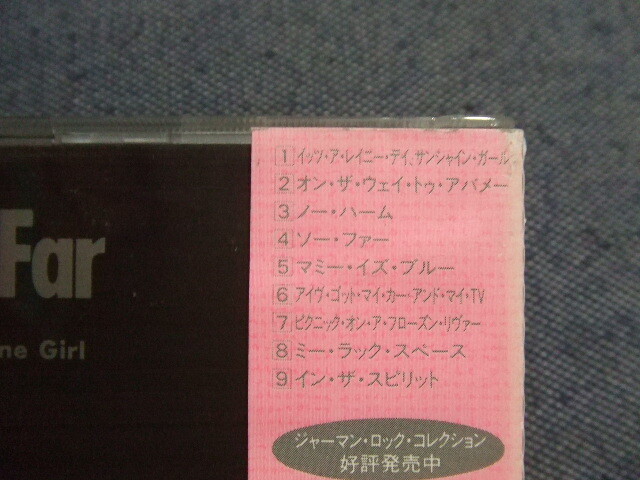 Far
ne Girl
1 イッツ・ア・レイニー・デイ、サンシャイン・ガール
2 オン・ザ・ウェイ・トゥ・アバメー
3 ノー・ハーム
4 ソー・ファー
5 マミー・イズ・ブルー
6 アイヴ・ゴット・マイ・カー・アンド・マイ・TV
7 ピクニック・オン・ア・フローズン・リヴァー
8 ミー・ラック・スペース
9 イン・ザ・スピリット
ジャーマン・ロック・コレクション
好評発売中